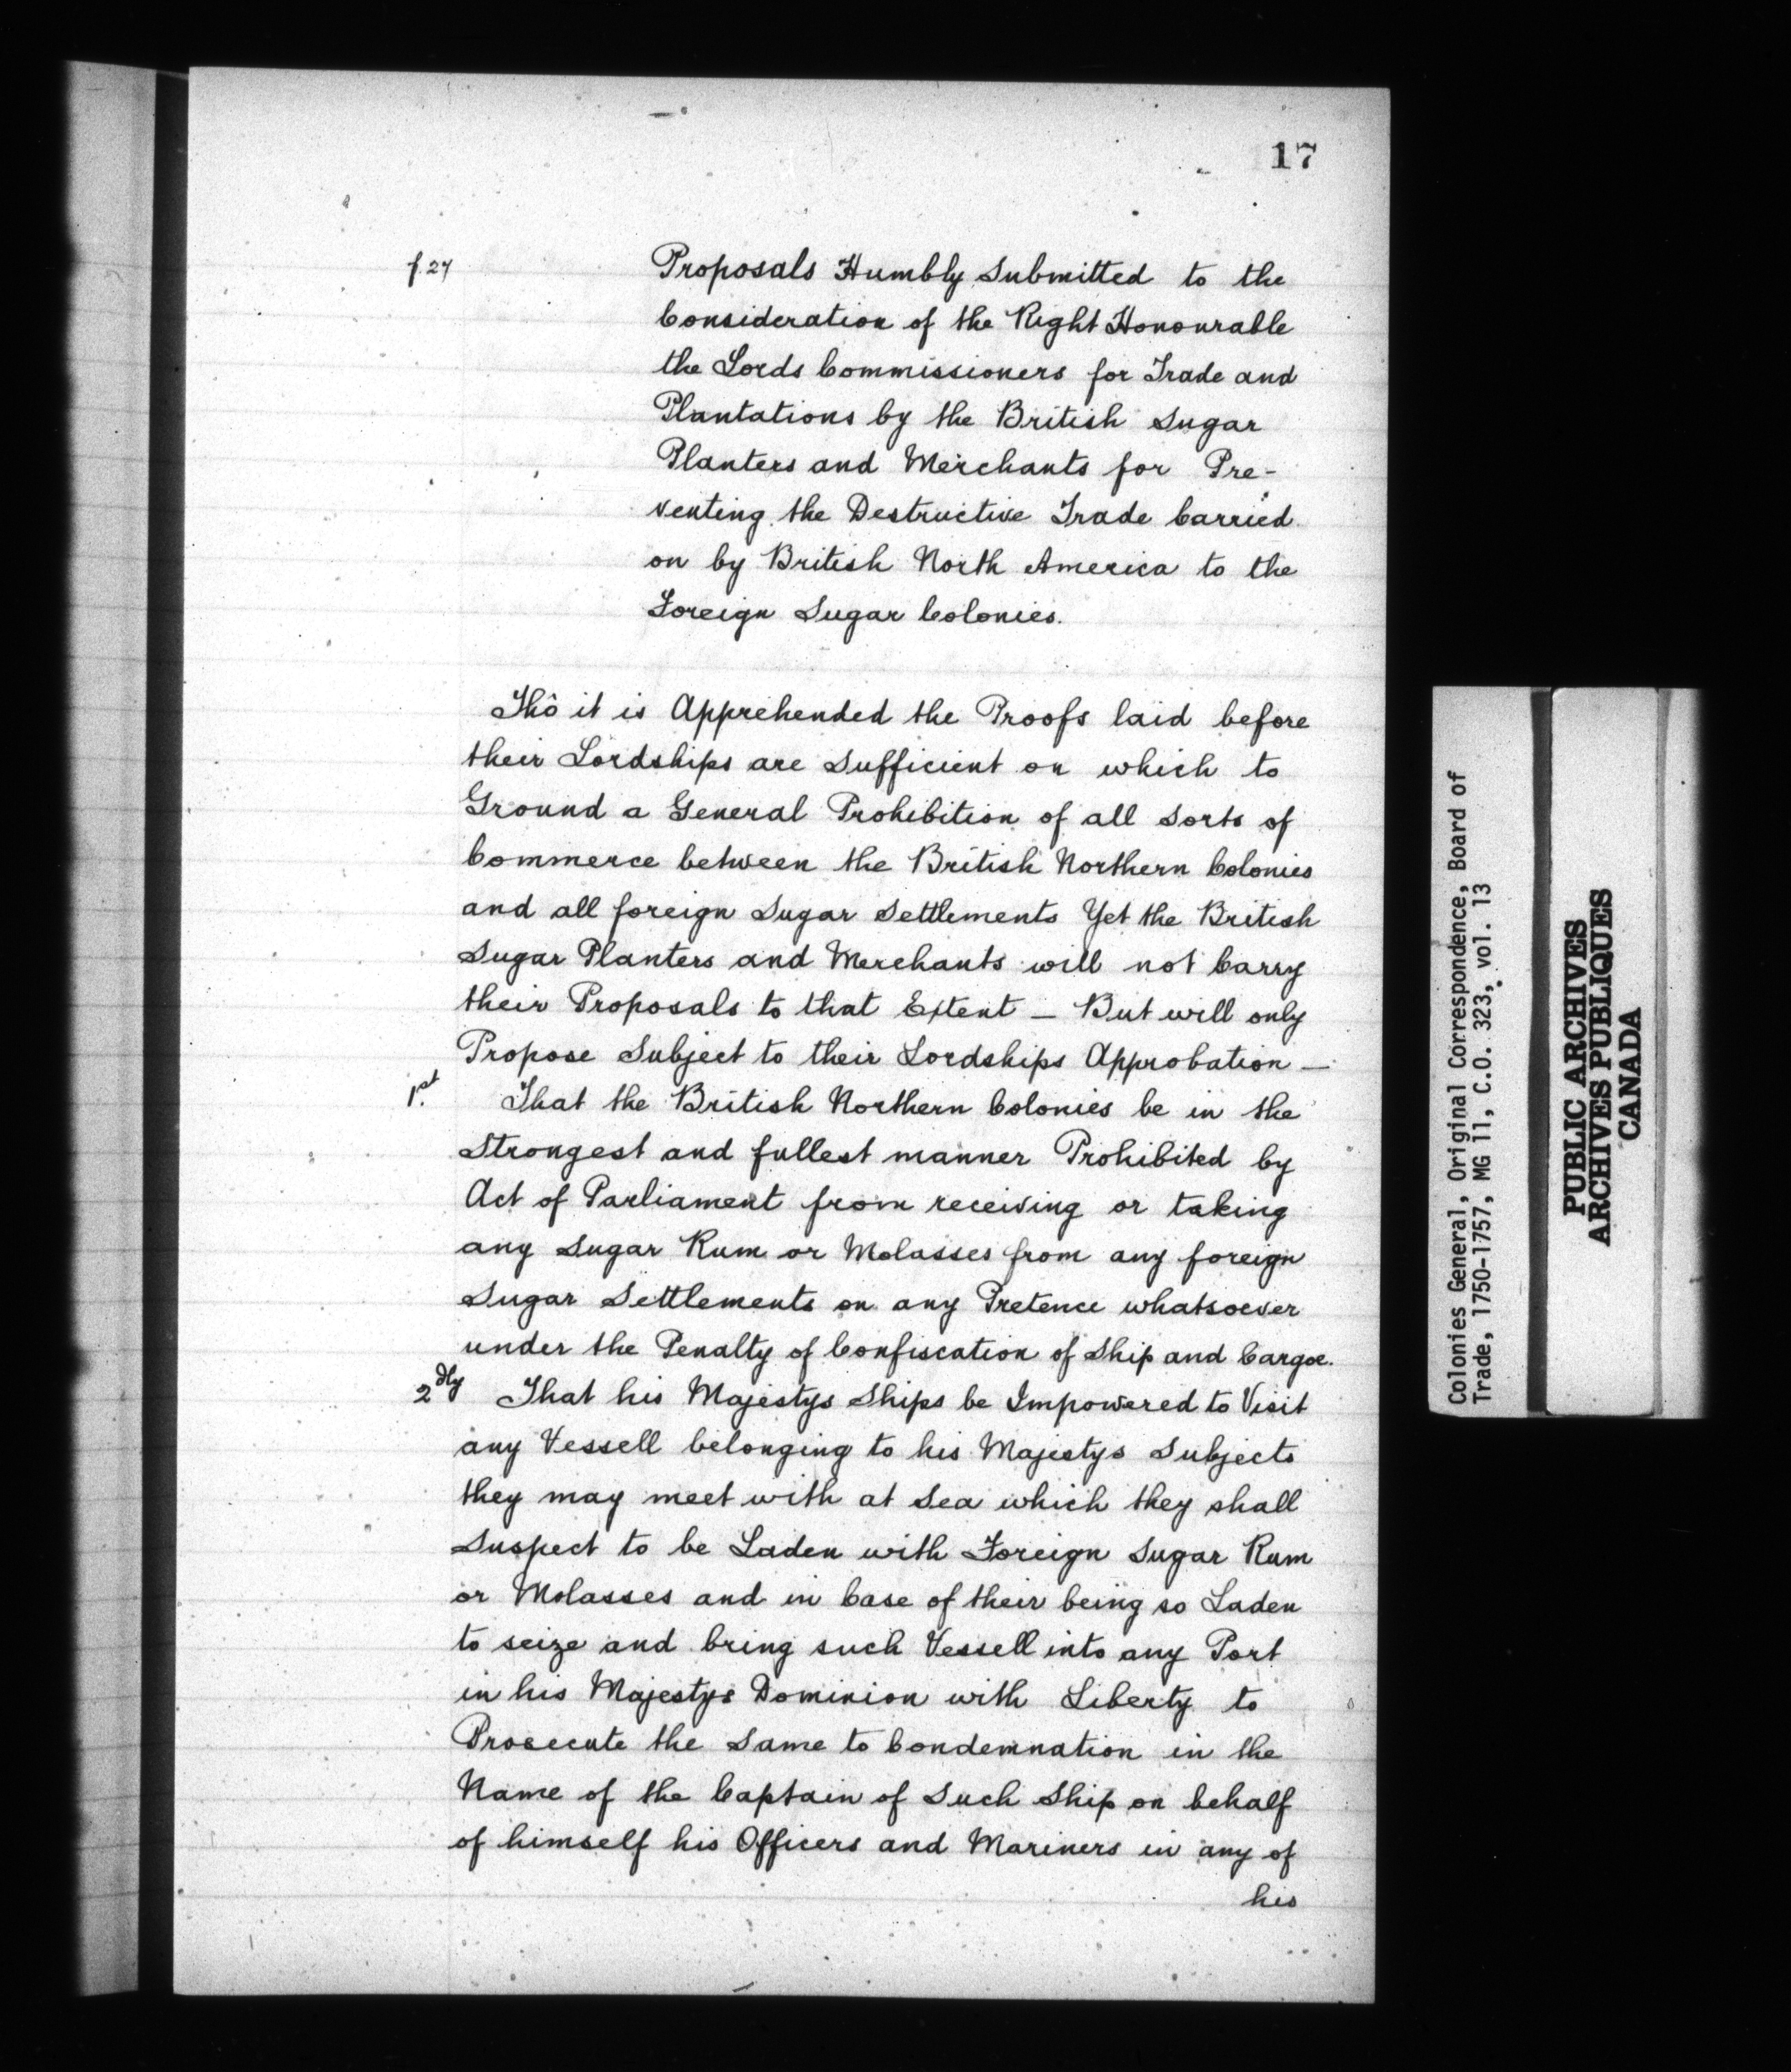 17
f. 27
Proposals Humbly Submitted to the
Consideration of the Right Honourable
the Lords Commissioners for Trade and
Plantations by the British Sugar
Planters and Merchants for Pre-
venting the Destructive Trade Carried
on by British North America to the
Foreign Sugar Colonies.
Thô it is Apprehended the Proofs laid before
their Lordships are Sufficient on which to
Ground a General Prohibition of all Sorts of
Commerce between the British Northern Colonies
and all foreign Sugar Settlements Yet the British
Sugar Planters and Merchants will not Carry
their Proposals to that Extent — But will only
Propose Subject to their Lordships Approbation —
1.st That the British Northern Colonies be in the
Strongest and fullest manner Prohibited by
Act of Parliament from receiving or taking
any Sugar Rum or Molasses from any foreign
Sugar Settlements on any Pretence whatsoever
under the Penalty of Confiscation of Ship and Cargoe.
2dly That his Majestys Ships be Impowered to Visit
any Vessell belonging to his Majestys Subjects
they may meet with at Sea which they shall
Suspect to be Laden with Foreign Sugar Rum
or Molasses and in Case of their being so Laden
to seize and bring such Vessell into any Port
in his Majestys Dominion with Liberty to
Prosecute the Same to Condemnation in the
Name of the Captain of Such Ship on behalf
of himself his Officers and Mariners in any of
his
Colonies General, Original Correspondence, Board of
Trade, 1750-1757, MG 11, C.O. 323, vol. 13
PUBLIC ARCHIVES
ARCHIVES PUBLIQUES
CANADA